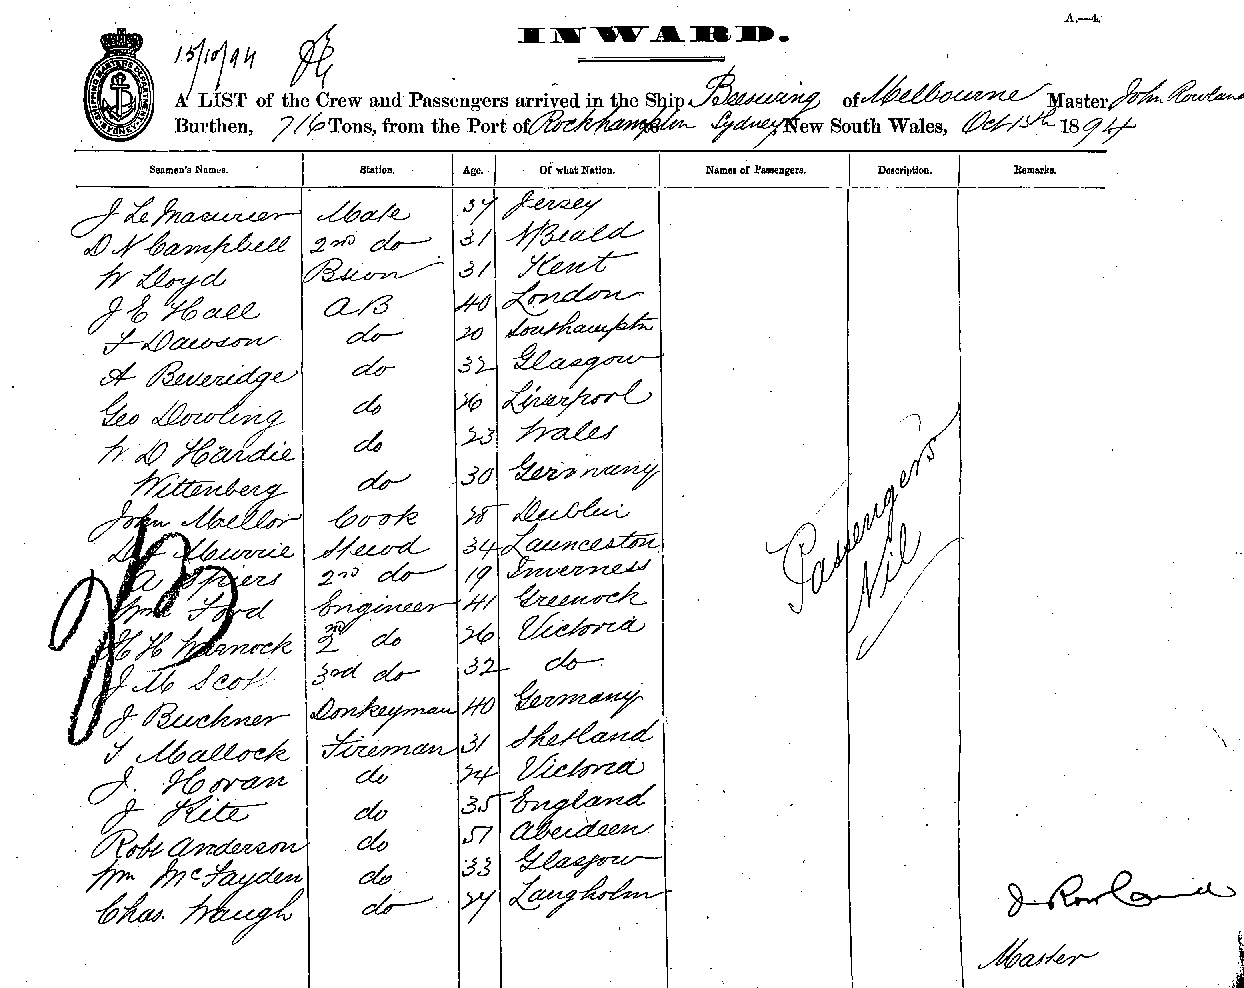 A.—4.
INWARD.
15/10/94
SHIPPING MASTERS DEPARTMENT SYDNEY
A LIST of the Crew and Passengers arrived in the Ship Beeswing of Melbourne Master John Rowland
Burthen, 716 Tons, from the Port of Rockhampton Sydney New South Wales, Oct 15th 1894
Seamen's Names. Station. Age. Of what Nation. Names of Passengers. Description. Remarks.
J Le Masurier Mate 37 Jersey
D N Campbell 2nd do 31
W Lloyd 31 Kent
J E Hall AB 40 London
Dawson do 20 Southampton
A Beveridge do 32 Glasgow
Geo Dowling do 26 Liverpool
W. D Hardie do 23 Wales
Wittenberg do 30 Germany
John Mellor Cook 28 Dublin
Murrie Stewd 34 Launceston
A Spiers 2nd do 19 Inverness
Wm Ford Engineer 41 Greenock
H H Warnock 2nd do 26 Victoria
J M Scott 3rd do 32 do
J Buchner Donkeyman 40 Germany
Mallock Fireman 31 Shetland
J. Horan do 24 Victoria
J Kite do 35 England
Robt Anderson do 51 Aberdeen
Wm McFayden do 33 Glasgow
Chas. Waugh do 27 Langholm
Passengers
Nil
J Rowland
Master